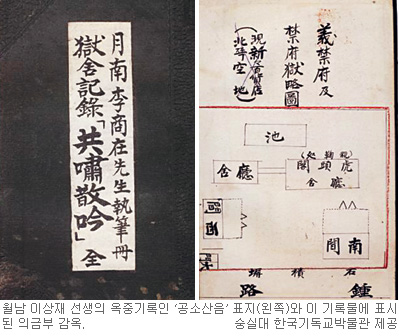 月南 李商在先生執筆冊
獄舍記錄「共嘯散吟」 全
義禁府及
禁府獄略圖
池
舍廳
閣頭虎
舍廳
南間
墻 積 石
路 鍾
월남 이상재 선생의 옥중기록인 ‘공소산음’ 표지(왼쪽)와 이 기록물에 표시
된 의금부 감옥. 숭실대 한국기독교박물관 제공